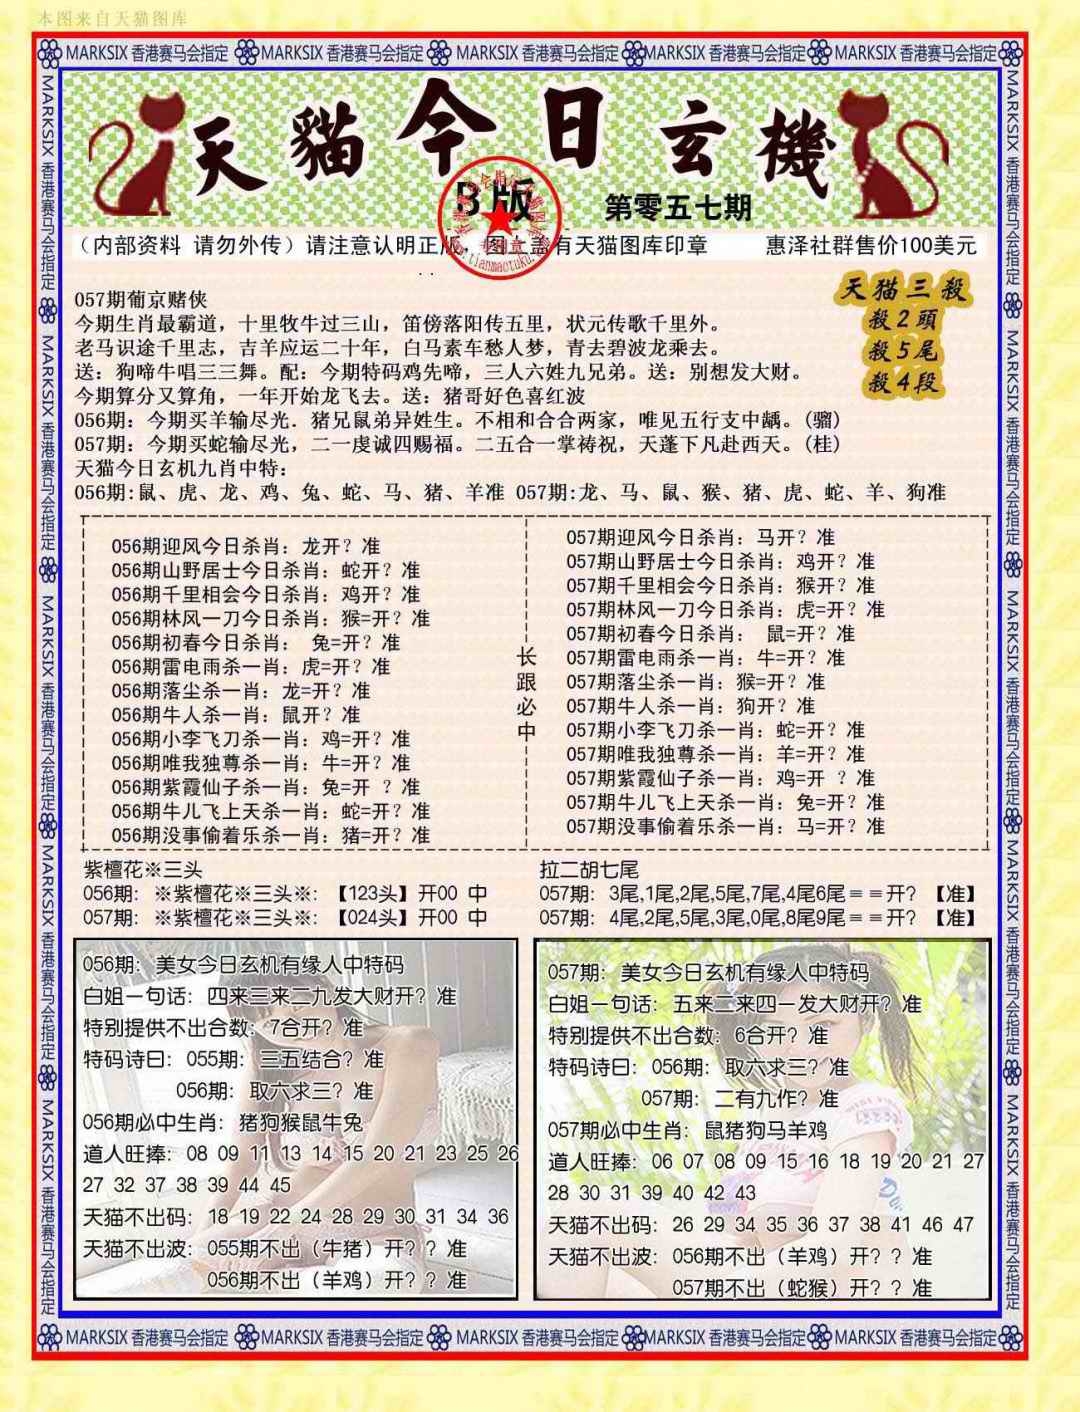 本图来自天猫图库
MARKSIX 香港赛马会指定 MARKSIX 香港赛马会指定 MARKSIX 香港赛马会指定 MARKSIX 香港赛马会指定 MARKSIX 香港赛马会指定
天貓今日玄機
B版
第零五七期
(内部资料 请勿外传)请注意认明正版,图上盖有天猫图库印章 惠泽社群售价100美元
www.tianmaotuku.
天猫三殺
殺2頭
殺5尾
殺4段
057期葡京赌侠
今期生肖最霸道,十里牧牛过三山,笛傍落阳传五里,状元传歌千里外。
老马识途千里志,吉羊应运二十年,白马素车愁人梦,青去碧波龙乘去。
送:狗啼牛唱三三舞。配:今期特码鸡先啼,三人六姓九兄弟。送:别想发大财。
今期算分又算角,一年开始龙飞去。送:猪哥好色喜红波
056期:今期买羊输尽光.猪兄鼠弟异姓生。不相和合合两家,唯见五行支中龋。(骝)
057期:今期买蛇输尽光,二一虔诚四赐福。二五合一掌祷祝,天蓬下凡赴西天。(桂)
天猫今日玄机九肖中特:
056期:鼠、虎、龙、鸡、兔、蛇、马、猪、羊准 057期:龙、马、鼠、猴、猪、虎、蛇、羊、狗准
056期迎风今日杀肖:龙开?准
056期山野居士今日杀肖:蛇开?准
056期千里相会今日杀肖:鸡开?准
056期林风一刀今日杀肖:猴=开?准
056期初春今日杀肖: 兔=开?准
056期雷电雨杀一肖:虎=开?准
056期落尘杀一肖:龙=开?准
056期牛人杀一肖:鼠开?准
056期小李飞刀杀一肖:鸡=开?准
056期唯我独尊杀一肖:牛=开?准
056期紫霞仙子杀一肖:兔=开 ?准
056期牛儿飞上天杀一肖:蛇=开?准
056期没事偷着乐杀一肖:猪=开?准
长跟必中
057期迎风今日杀肖:马开?准
057期山野居士今日杀肖:鸡开?准
057期千里相会今日杀肖:猴开?准
057期林风一刀今日杀肖:虎=开?准
057期初春今日杀肖: 鼠=开?准
057期雷电雨杀一肖:牛=开?准
057期落尘杀一肖:猴=开?准
057期牛人杀一肖:狗开?准
057期小李飞刀杀一肖:蛇=开?准
057期唯我独尊杀一肖:羊=开?准
057期紫霞仙子杀一肖:鸡=开 ?准
057期牛儿飞上天杀一肖:兔=开?准
057期没事偷着乐杀一肖:马=开?准
紫檀花※三头
056期:※紫檀花※三头※:【123头】开00 中
057期:※紫檀花※三头※:【024头】开00 中
拉二胡七尾
057期:3尾,1尾,2尾,5尾,7尾,4尾6尾==开?【准】
057期:4尾,2尾,5尾,3尾,0尾,8尾9尾==开?【准】
056期:美女今日玄机有缘人中特码
白姐一句话:四来三来二九发大财开?准
特别提供不出合数:7合开?准
特码诗曰:055期:三五结合?准
056期:取六求三?准
056期必中生肖:猪狗猴鼠牛兔
道人旺捧:08 09 11 13 14 15 20 21 23 25 26
27 32 37 38 39 44 45
天猫不出码:18 19 22 24 28 29 30 31 34 36
天猫不出波:055期不出(牛猪)开??准
056期不出(羊鸡)开??准
057期:美女今日玄机有缘人中特码
白姐一句话:五来二来四一发大财开?准
特别提供不出合数:6合开?准
特码诗曰:056期:取六求三?准
057期:二有九作?准
057期必中生肖:鼠猪狗马羊鸡
道人旺捧:06 07 08 09 15 16 18 19 20 21 27
28 30 31 39 40 42 43
天猫不出码:26 29 34 35 36 37 38 41 46 47
天猫不出波:056期不出(羊鸡)开??准
057期不出(蛇猴)开??准
MARKSIX 香港赛马会指定 MARKSIX 香港赛马会指定 MARKSIX 香港赛马会指定 MARKSIX 香港赛马会指定 MARKSIX 香港赛马会指定
MARKSIX 香港赛马会指定 MARKSIX 香港赛马会指定 MARKSIX 香港赛马会指定 MARKSIX 香港赛马会指定 MARKSIX 香港赛马会指定
MARKSIX 香港赛马会指定 MARKSIX 香港赛马会指定 MARKSIX 香港赛马会指定 MARKSIX 香港赛马会指定 MARKSIX 香港赛马会指定